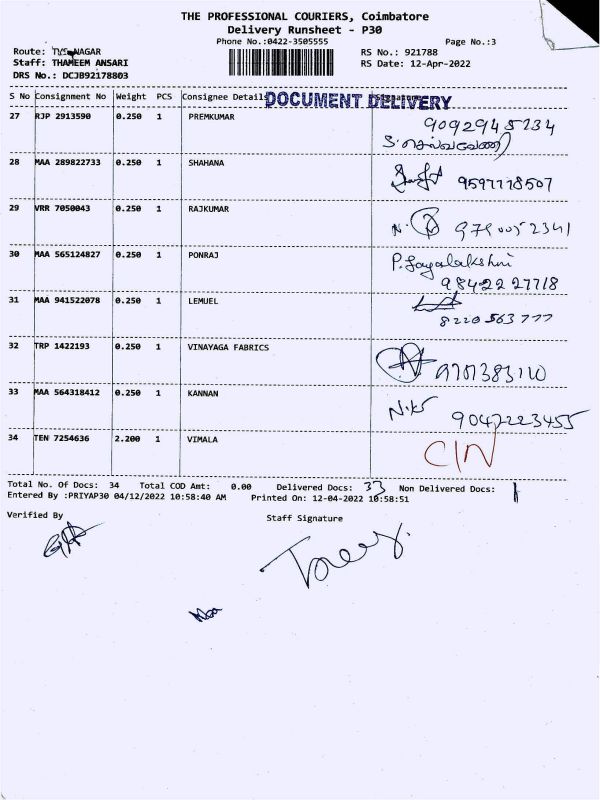 THE PROFESSIONAL COURIERS, Coimbatore
Delivery Runsheet - P30
Phone No.:0422-3505555
Page No.:3
Route: TVS NAGAR
RS No.: 921788
Staff: THAMEEM ANSARI
RS Date: 12-Apr-2022
DRS No.: DCJB92178803
S No Consignment No Weight PCS Consignee Details Signature
DOCUMENT DELIVERY
27 RJP 2913590 0.250 1 PREMKUMAR
S. செல்வவேணி
28 MAA 289822733 0.250 1 SHAHANA
9597778507
29 VRR 7050043 0.250 1 RAJKUMAR
N.
30 MAA 565124827 0.250 1 PONRAJ P. Jayalakshmi
98422 27718
31 MAA 941522078 0.250 1 LEMUEL
8220 563 777
32 TRP 1422193 0.250 1 VINAYAGA FABRICS
33 MAA 564318412 0.250 1 KANNAN
9047223455
34 TEN 7254636 2.200 1 VIMALA CIN
Total No. Of Docs: 34 Total COD Amt: 0.00 Delivered Docs: 33 Non Delivered Docs: 1
Entered By :PRIYAP30 04/12/2022 10:58:40 AM Printed On: 12-04-2022 10:58:51
Verified By Staff Signature